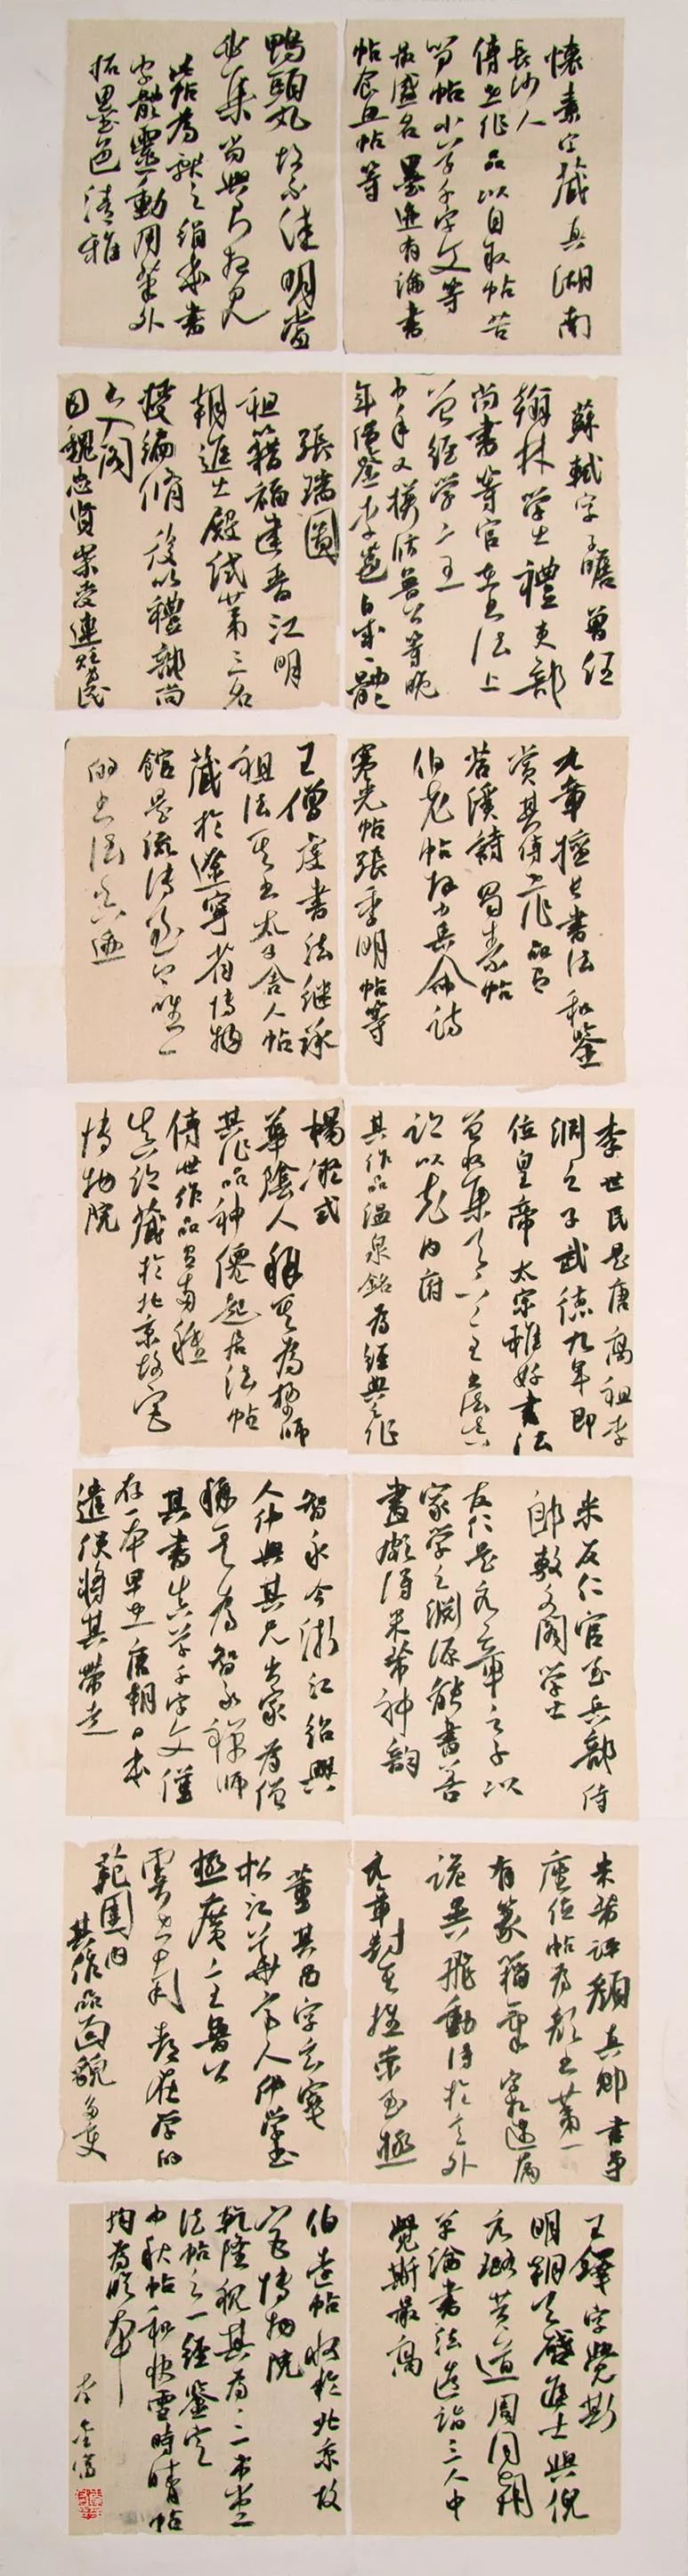 懷素字藏真湖南
長沙人
傳世作品以自敘帖苦
筍帖小草千字文等
最盛名墨迹有論書
帖食魚帖等
鴨頭丸故不佳明當
必集當與君相見
此帖為獻之絹本書
字體靈動用筆外
拓墨色清雅
蘇軾字子瞻曾任
翰林學士禮吏部
尚書等官在書法上
曾經學二王
中年又橫活魯公等晚
年學李邕自成一體
張瑞圖
祖籍福建晉江明
朝進士殿試第三名
授編脩後以禮部尚
書入閣
因魏忠賢案受連貶為民
元章擅長書法和鑒
賞其傳世作品有
苕溪詩蜀素帖
伯老帖
寒光帖張季明帖等
王僧虔書法繼承
祖法其書太子舍人帖
藏於遼寧省博物
館是流傳至今唯一
的書法真迹
李世民是唐高祖李
淵之子武德九年即
位皇帝太宗雅好書法
曾收集天下二王書法真
跡以充內府
其作品溫泉銘為經典之作
楊凝式
華陰人
其作品神僊起居法帖
傳世作品
真跡藏於北京故宮
博物院
米友仁官至兵部侍
郎敷文閣學士
友仁是元章之子以
家學之淵源能書善
畫頗得米芾神韵
智永今浙江紹興
人仲與其兄出家為僧
稱其為智永禪師
其書真草千字文僅
存一本早在唐朝日本
遣使將其帶走
米芾評顏真卿書爭
座位帖為顏書第一
有篆籀氣
詭異飛動得於意外
元章對其推崇至極
董其昌字玄宰
松江華亭人仲學書
極廣二王魯公
都在學的
範圍內
其作品面貌多變
王鐸字覺斯
明朝天啟進士與倪
元璐黃道周同朝
單論書法造詣三人中
覺斯最高
伯遠帖收於北京故
宮博物院
乾隆視其為三希堂
法帖之一經鑒定
中秋帖和快雪時晴帖
均為臨本